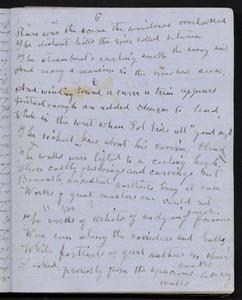 6
Rare was the scene the windows overlooked
The distant hills the river rolled between
The steamboat's curling smoke the snowy sail
And many a mansion in the view was seen,
And winding round a curve a train appears
Distant enough an added charm to lend,
While in the west when Sol bids all "good night"
The richest hues about his
The walls were lifted to a ceiling high,
Where costly frescoings and carvings
Beneath ancestral portraits hung at ease
Works of great masters one could not
The works of artists of undying fame
Were seen along the corridors and halls
While portraits of great authors
books
Look proudly from the spacious library
walls